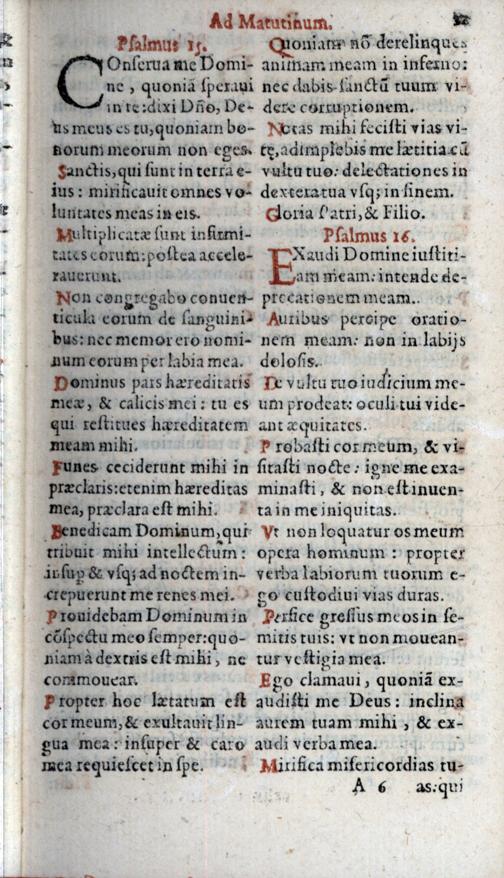 Ad Matutinum.
Psalmus 15.
COnserua me Domi-
ne, quoniã speraui
in te: dixi Dño, De-
us meus es tu, quoniam bo-
norum meorum non eges.
Sanctis, qui sunt in terra e-
ius: mirificauit omnes vo-
luntates meas in eis.
Multiplicatæ sunt infirmi-
tates eorum: postea accele-
rauerunt.
Non congregabo conuen-
ticula eorum de sanguini-
bus: nec memor ero nomi-
num eorum per labia mea.
Dominus pars hæreditatis
meæ, & calicis mei: tu es
qui restitues hæreditatem
meam mihi.
Funes ceciderunt mihi in
præclaris: etenim hæreditas
mea, præclara est mihi.
Benedicam Dominum, qui
tribuit mihi intellectum:
insup & vsq; ad noctem in-
crepuerunt me renes mei.
Prouidebam Dominum in
cõspectu meo semper: quo-
niam à dextris est mihi, ne
commouear.
Propter hoc lætatum est
cor meum, & exultauit lin-
gua mea: insuper & caro
mea requiescet in spe.
Quoniam nõ derelinques
animam meam in inferno:
nec dabis sanctũ tuum vi-
dere corruptionem.
Notas mihi fecisti vias vi-
tę, adimplebis me lætitia cũ
vultu tuo: delectationes in
dextera tua vsq; in finem.
Gloria Patri, & Filio.
Psalmus 16.
EXaudi Domine iustiti-
am meam: intende de-
precationem meam.
Auribus percipe oratio-
nem meam: non in labijs
dolosis.
De vultu tuo iudicium me-
um prodeat: oculi tui vide-
ant æquitates.
Probasti cor meum, & vi-
sitasti nocte: igne me exa-
minasti, & non est inuen-
ta in me iniquitas.
Vt non loquatur os meum
opera hominum: propter
verba labiorum tuorum e-
go custodiui vias duras.
Perfice gressus meos in se-
mitis tuis: vt non mouean-
tur vestigia mea.
Ego clamaui, quoniã ex-
audisti me Deus: inclina
aurem tuam mihi, & ex-
audi verba mea.
Mirifica misericordias tu-
A 6 as: qui